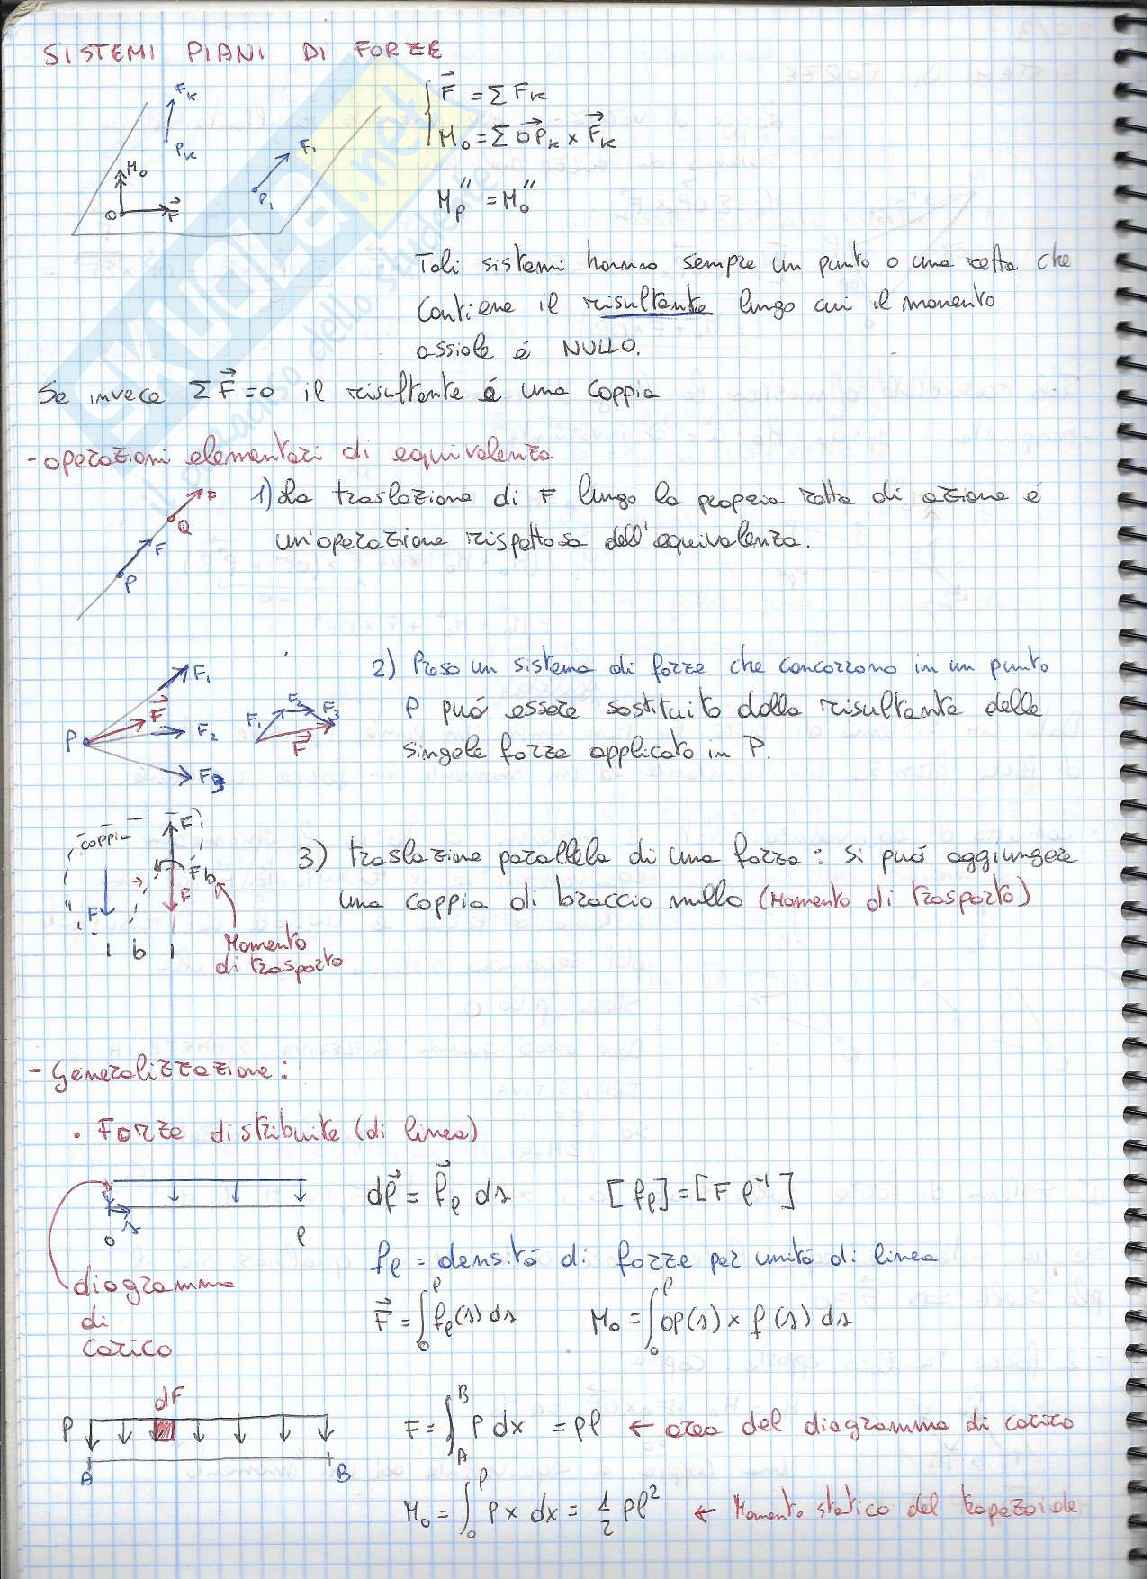 SISTEMI PIANI DI FORZE
F_K
P_K
M_o
O
F⃗
F_1
P_1
F⃗ = Σ F_K
M_o = Σ OP⃗_K × F⃗_K
M_p'' = M_o''
Tali sistemi hanno sempre un punto o una retta che
contiene il risultante lungo cui il momento
assiale é NULLO.
Se invece Σ F⃗ = 0 il risultante é una coppia
- operazioni elementari di equivalenza
F
Q
F
P
1) La traslazione di F lungo la propria retta di azione é
un'operazione rispettosa dell'equivalenza.
F_1
F⃗
P
F_2
F_3
F_1
F_2
F_3
F⃗
2) Preso un sistema di forze che concorrono in un punto
P puó essere sostituito dalla risultante delle
singole forze applicato in P.
coppia
F
Fb
F
F
b
Momento
di trasporto
3) traslazione parallela di una forza: si puó aggiungere
una coppia di braccio nullo (Momento di trasporto)
- Generalizzazione:
. Forze distribuite (di linea)
s
o
l
diagramma
di
carico
df⃗ = f⃗_l ds [f_l] = [F l⁻¹]
f_l = densitá di forze per unitá di linea
F⃗ = ∫_0^l f_l(s) ds M_o = ∫_0^l OP(s) × f(s) ds
dF
P
A
B
F = ∫_A^B P dx = Pl ← area del diagramma di carico
M_o = ∫_0^l P x dx = 1/2 Pl² ← Momento statico del trapezoide
SKUOLA.net